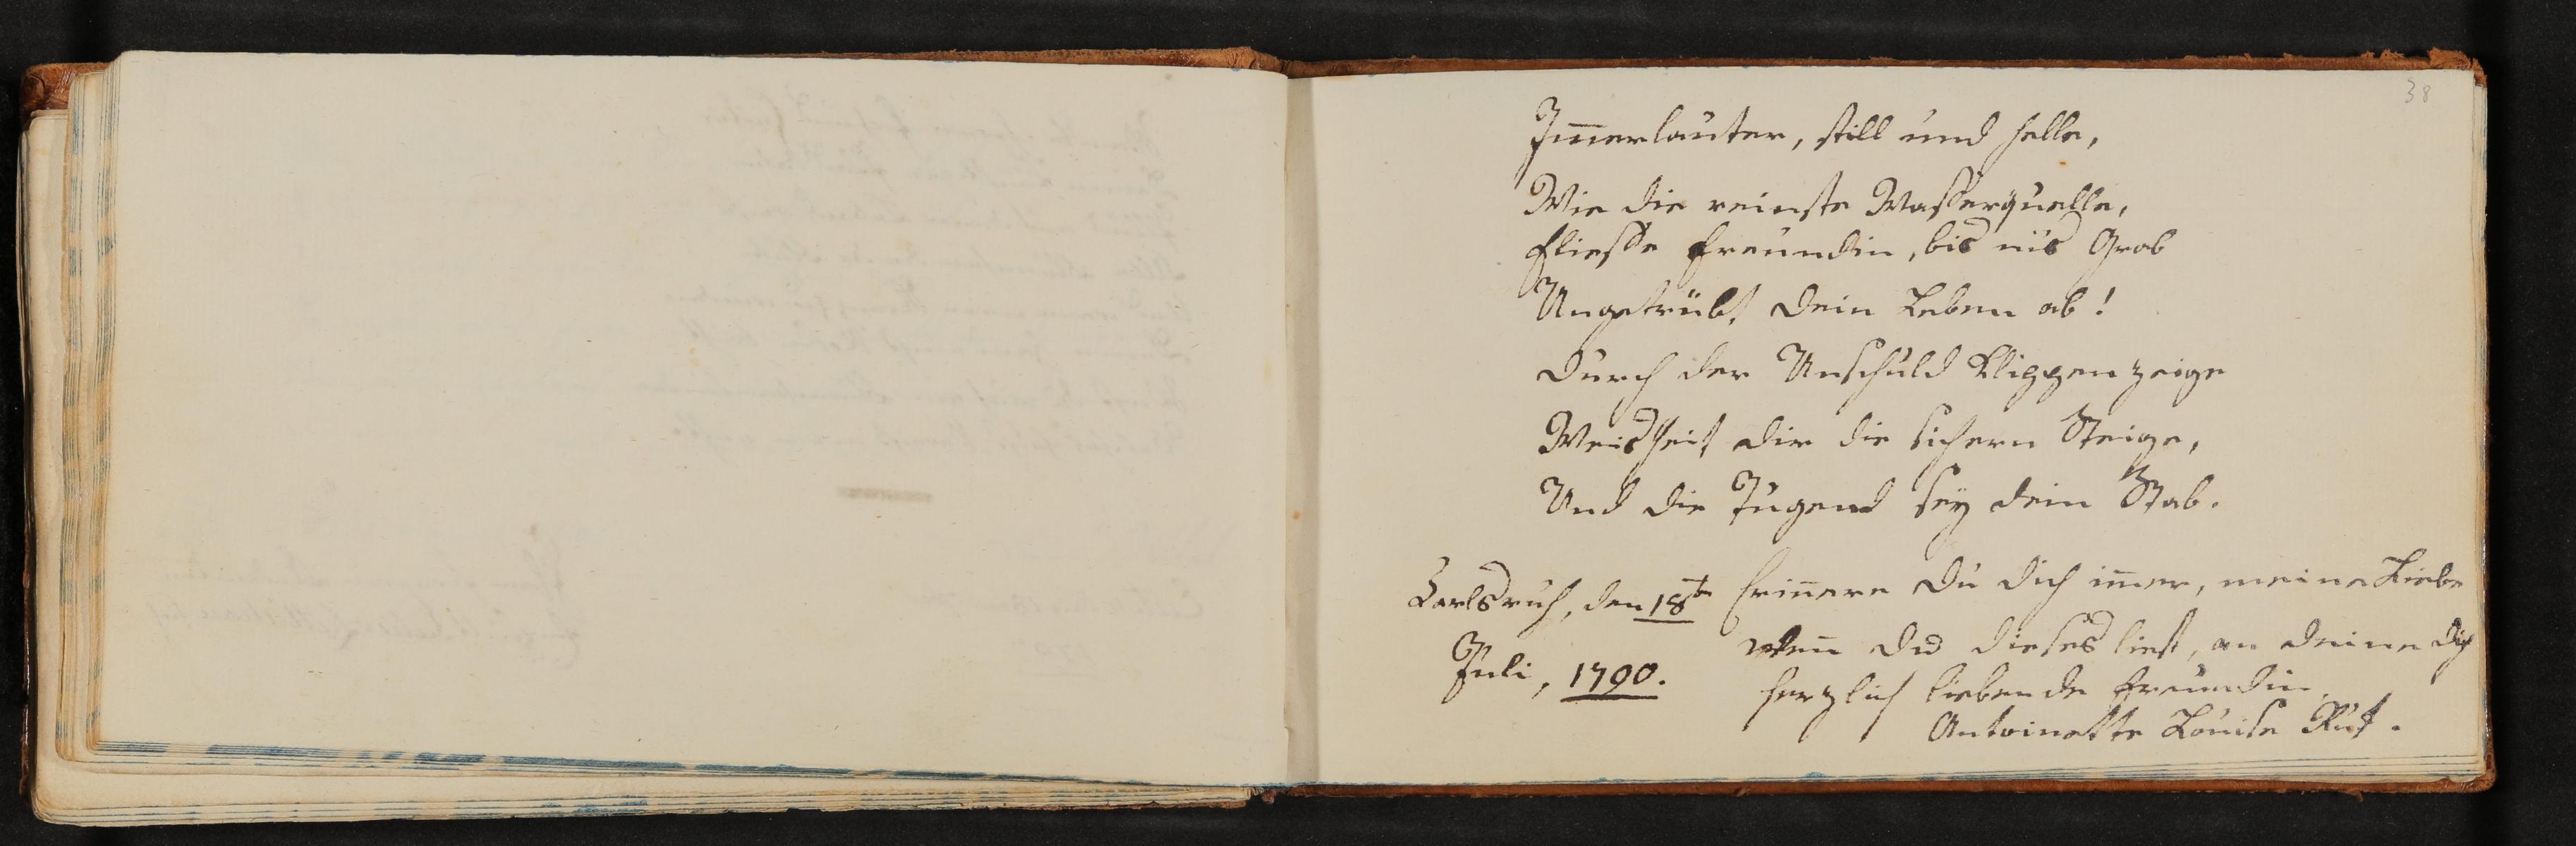 38
Im̅erlauter, still und helle,
Wie die reinste Wasserquelle,
Fliesse Freundin, bis in's Grab
Ungetrübt dein Leben ab!
Durch der Unschuld Klippen zeige
Weisheit dir die sichern Steige,
Und die Tugend sey dein Stab.
Carlsruh, den 18ten
Juli, 1790.
Erin̅ere du dich im̅er, meine Liebe
wen̅ du dieses liest, an deine dich
herzlich liebende Freundin.
Antoinette Louise